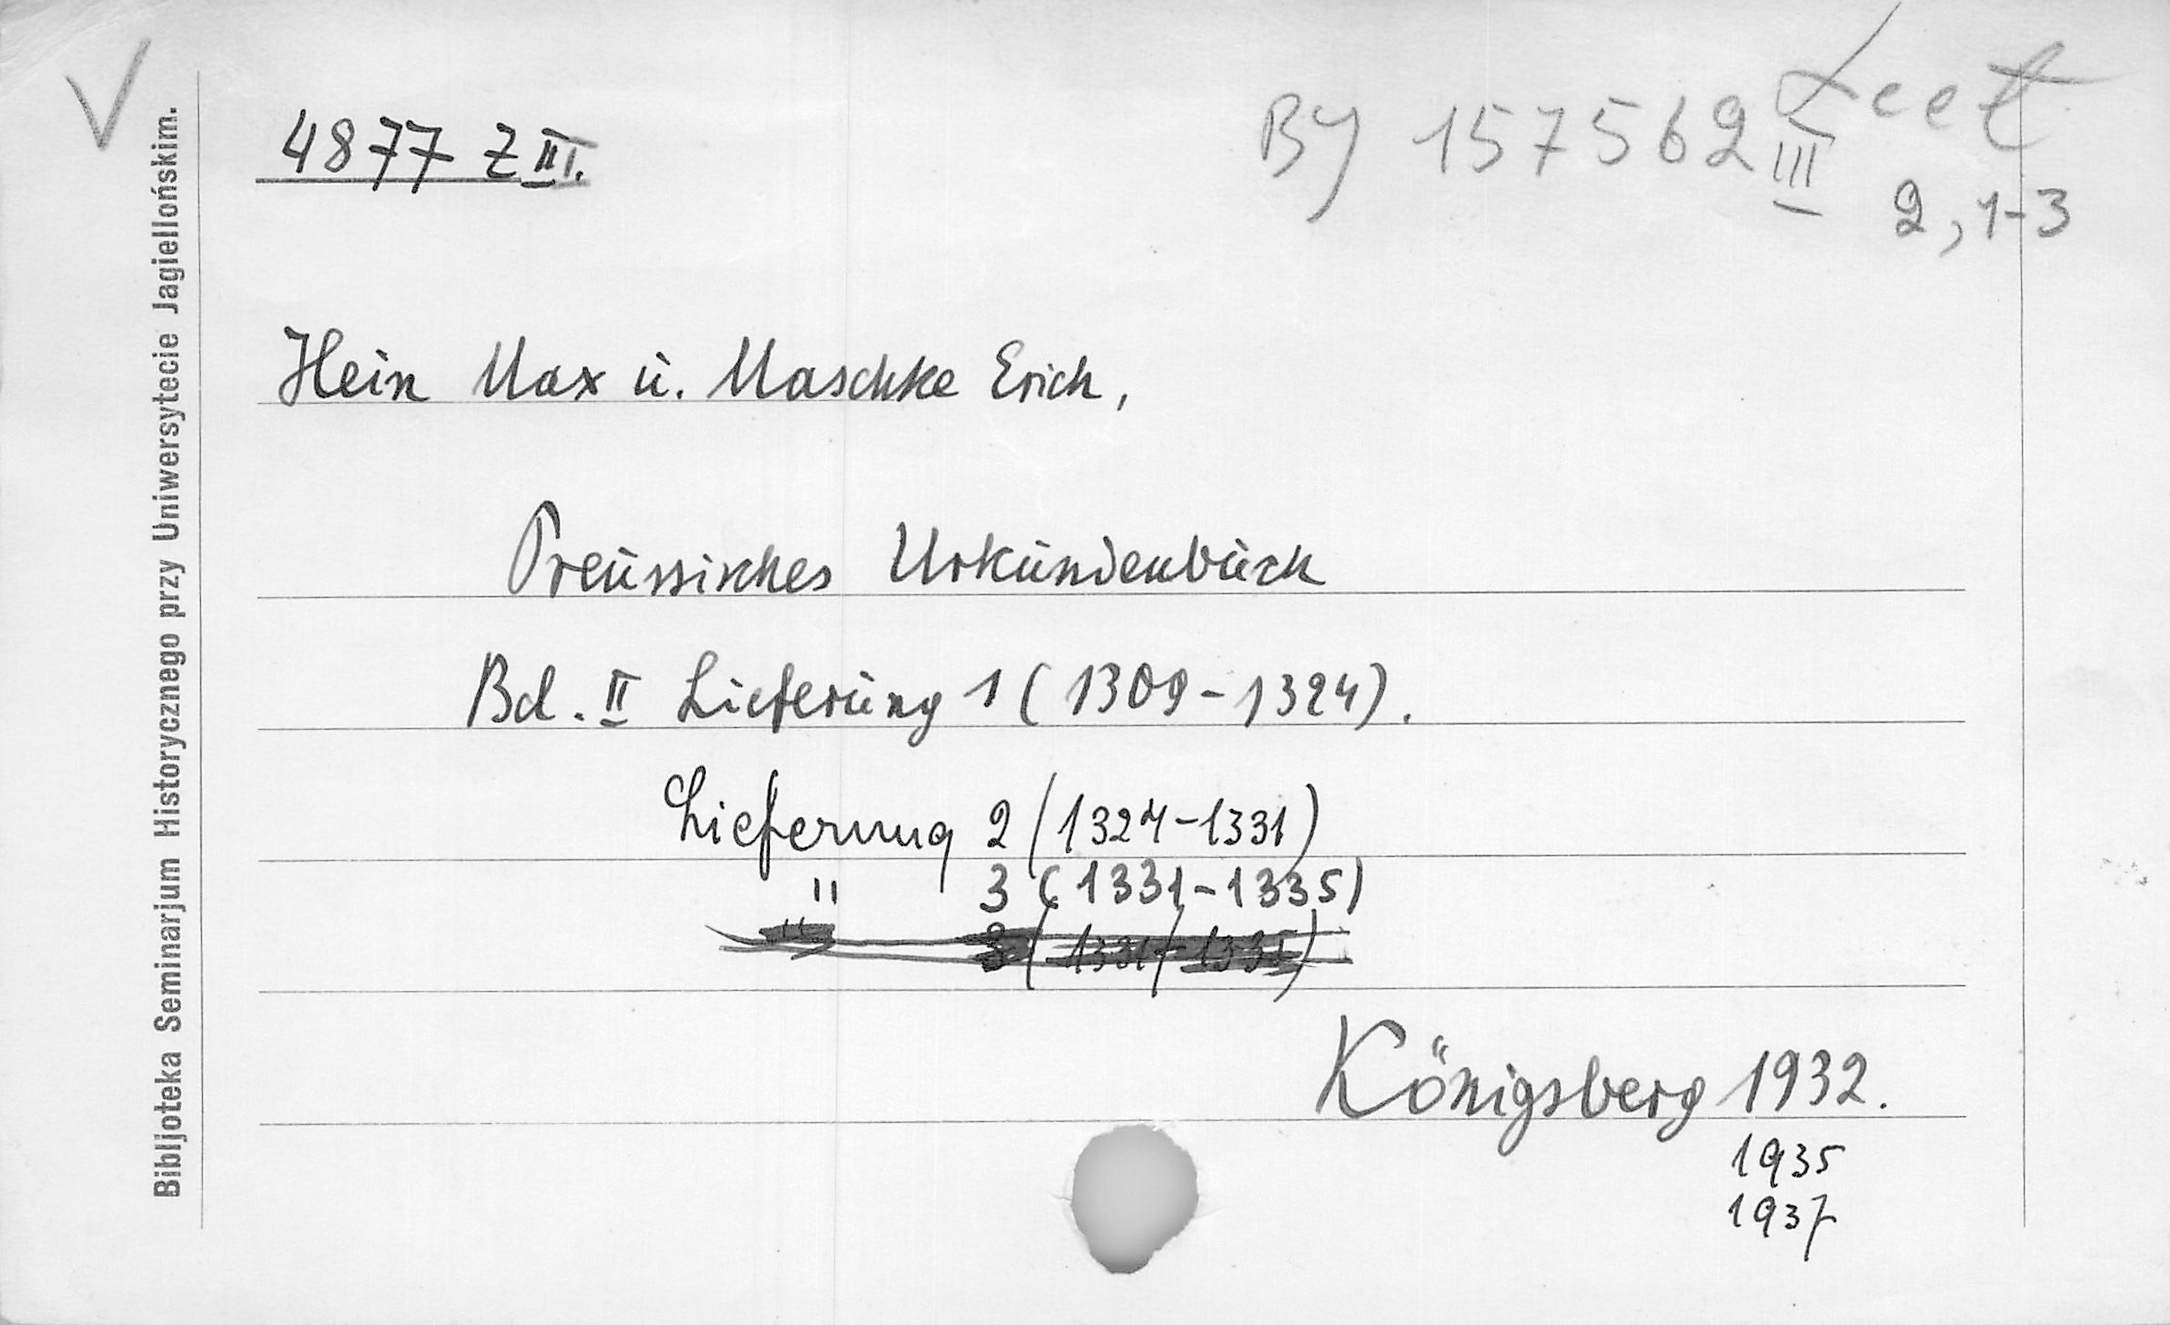 4877 Z III.
BY 157562 III Lect
2, 1-3
Hein Max u. Maschke Erich,
Preussisches Urkundenbuch
Bd. II Lieferung 1 (1309-1324).
Lieferung 2 (1324-1331)
" 3 (1331-1335)
" 3 (1331-1335)
Königsberg 1932.
1935
1937
Bibljoteka Seminarjum Historycznego przy Uniwersytecie Jagiellońskim.